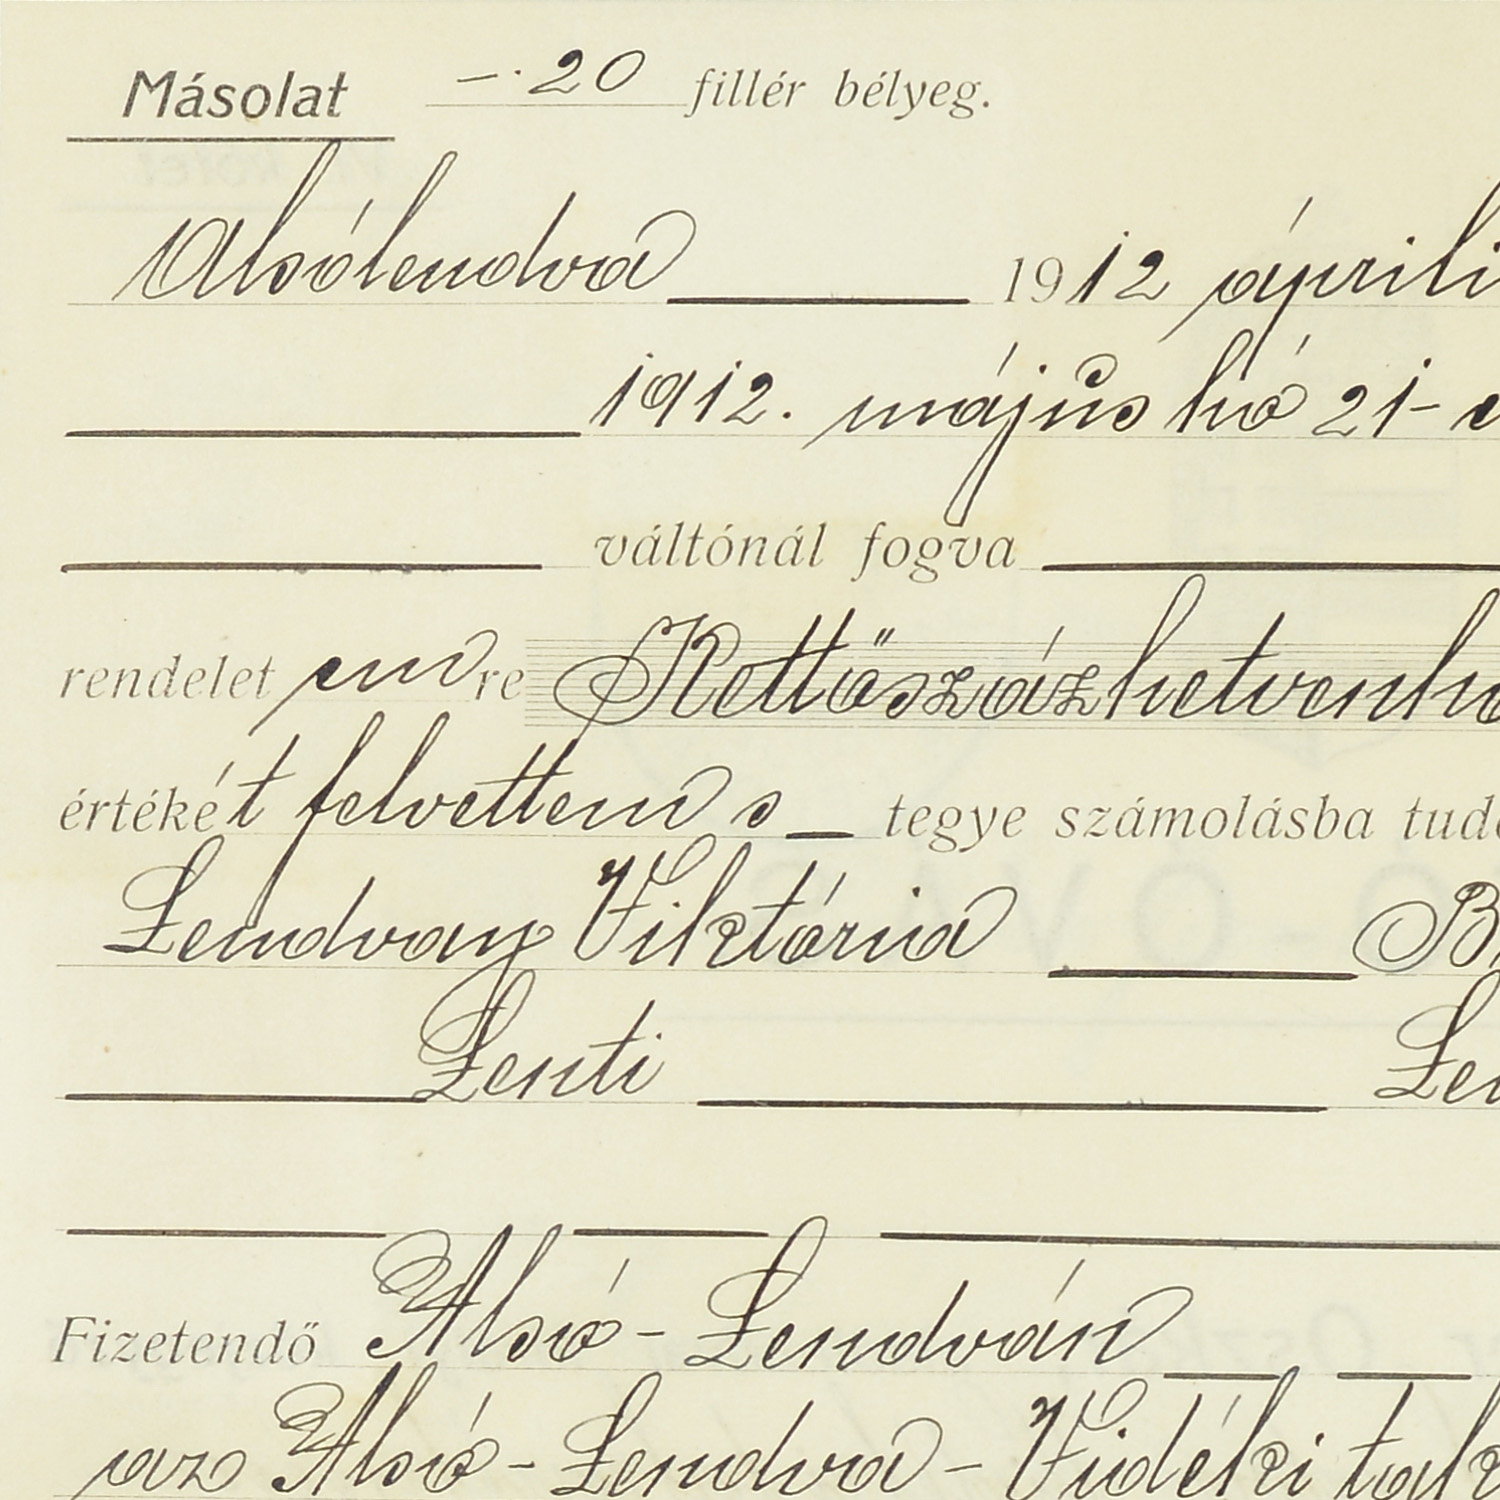 Másolat —·20 fillér bélyeg.
Alsólendva 1912 április
1912. május hó 21-
váltónál fogva
rendelet emre Kettőszázhetven
értékét felvettem s tegye számolásba
Lendvay Viktória
Lenti
Fizetendő Alsó-Lendván
az Alsó-Lendva-Vidéki